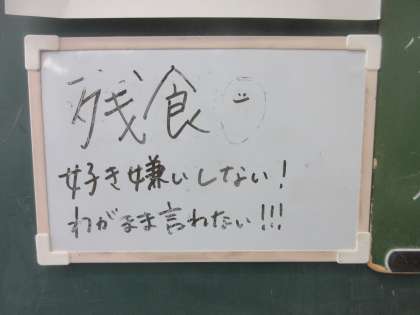 残食
好き嫌いしない!
わがまま言わない!!!